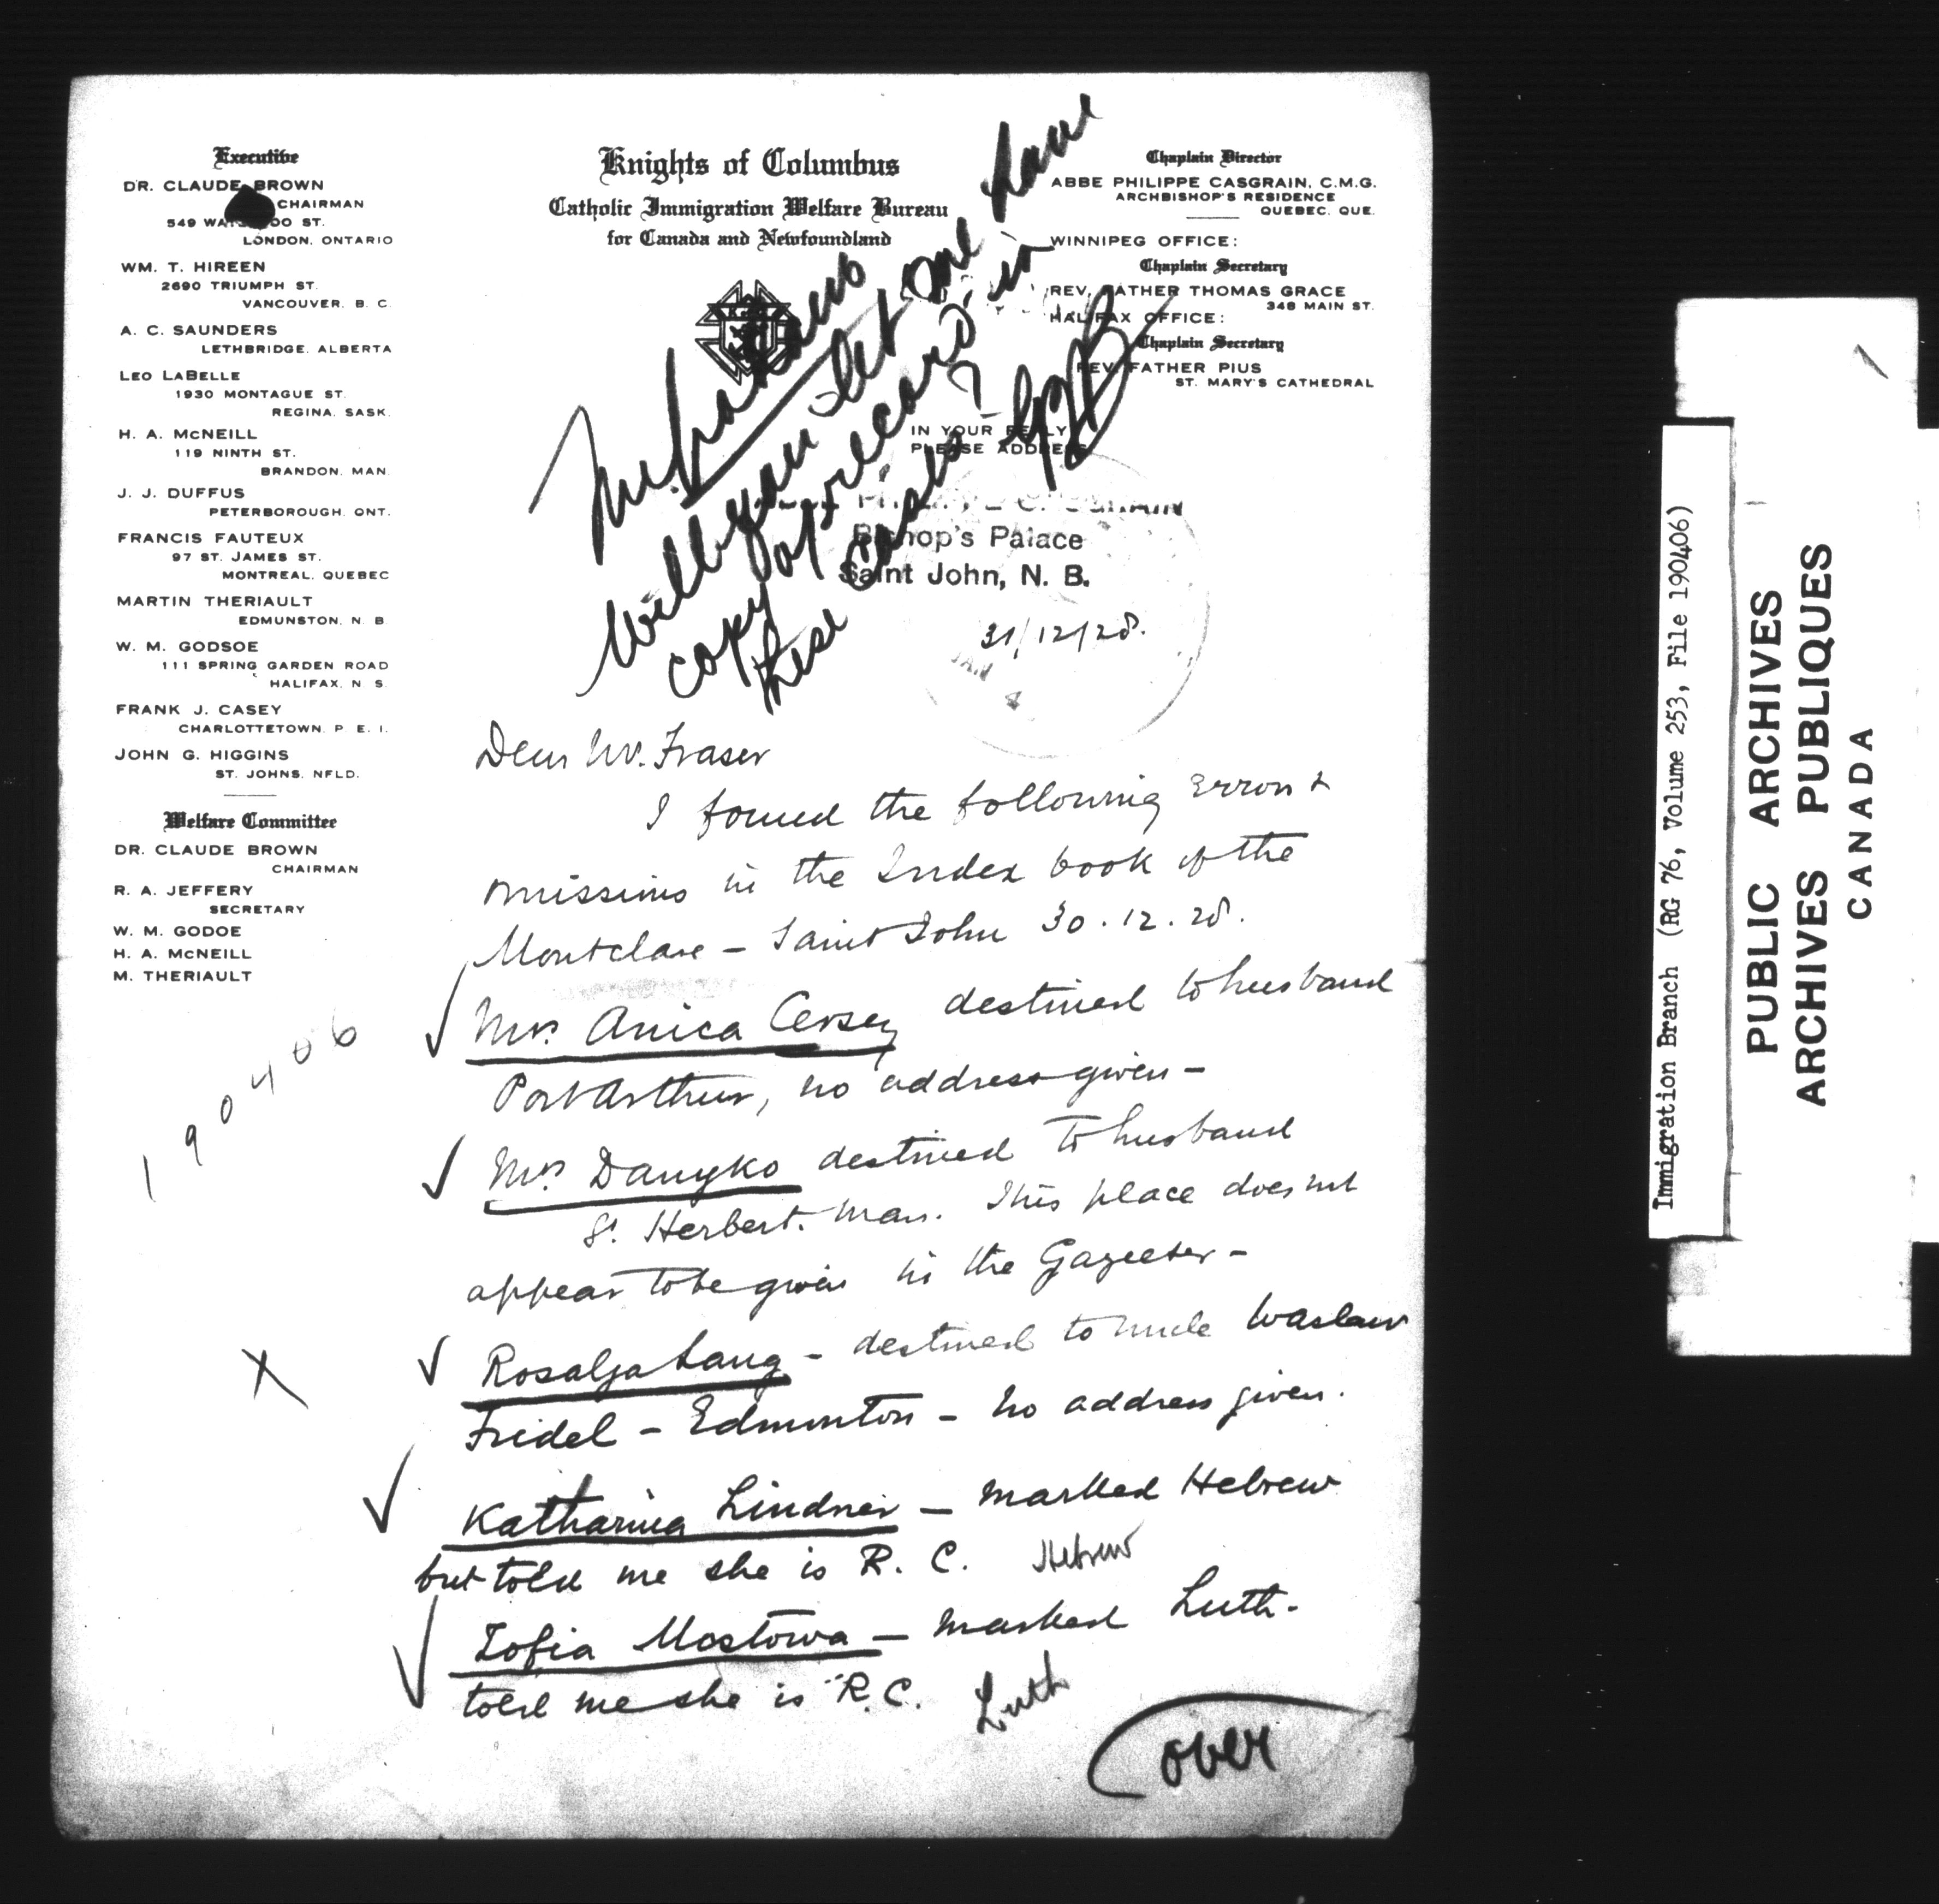 Executive
DR. CLAUDE BROWN
CHAIRMAN
549 ST.
LONDON, ONTARIO
WM. T. HIREEN
2690 TRIUMPH ST.
VANCOUVER, B. C.
A. C. SAUNDERS
LETHBRIDGE, ALBERTA
LEO LABELLE
1930 MONTAGUE ST.
REGINA, SASK.
H. A. McNEILL
119 NINTH ST.
BRANDON, MAN.
J. J. DUFFUS
PETERBOROUGH, ONT.
FRANCIS FAUTEUX
97 ST. JAMES ST.
MONTREAL, QUEBEC
MARTIN THERIAULT
EDMUNSTON, N. B
W. M. GODSOE
111 SPRING GARDEN ROAD
HALIFAX, N. S.
FRANK J. CASEY
CHARLOTTETOWN, P. E. I.
JOHN G. HIGGINS
ST. JOHNS, NFLD.
Welfare Committee
DR. CLAUDE BROWN
CHAIRMAN
R. A. JEFFERY
SECRETARY
W. M. GODOE
H. A. McNEILL
M. THERIAULT
Knights of Columbus
Catholic Immigration Welfare Bureau
for Canada and Newfoundland
Chaplain Director
ABBE PHILIPPE CASGRAIN, C.M.G.
ARCHBISHOP'S RESIDENCE
QUEBEC, QUE.
WINNIPEG OFFICE:
Chaplain Secretary
REV. FATHER THOMAS GRACE
348 MAIN ST.
HALIFAX OFFICE:
Chaplain Secretary
REV. FATHER PIUS
ST. MARY'S CATHEDRAL
Will you let me have
copy of record in
these cases ?
IN YOUR REPLY
PLEASE ADDRESS
Bishop's Palace
Saint John, N. B.
31/12/28.
JAN
Dear Mr. Fraser
I found the following errors &
omissions in the Index book of the
Montclare - Saint John 30.12.28.
Mrs. Anica Cersey destined to husband
Port Arthur, no address given -
Mrs. Danyko destined to husband
St. Herbert. Man. This place does not
appear to be given in the Gazeeter -
Rosalja Lang - destined to uncle Waslaw
Fridel - Edmonton - no address given.
Katharina Lindner - marked Hebrew
but told me she is R. C. Hebrew
Zofia Mostowa - marked Luth.
told me she is R.C. Luth
over
190406
X
Immigration Branch (RG 76, Volume 253, File 190406)
PUBLIC ARCHIVES
ARCHIVES PUBLIQUES
CANADA